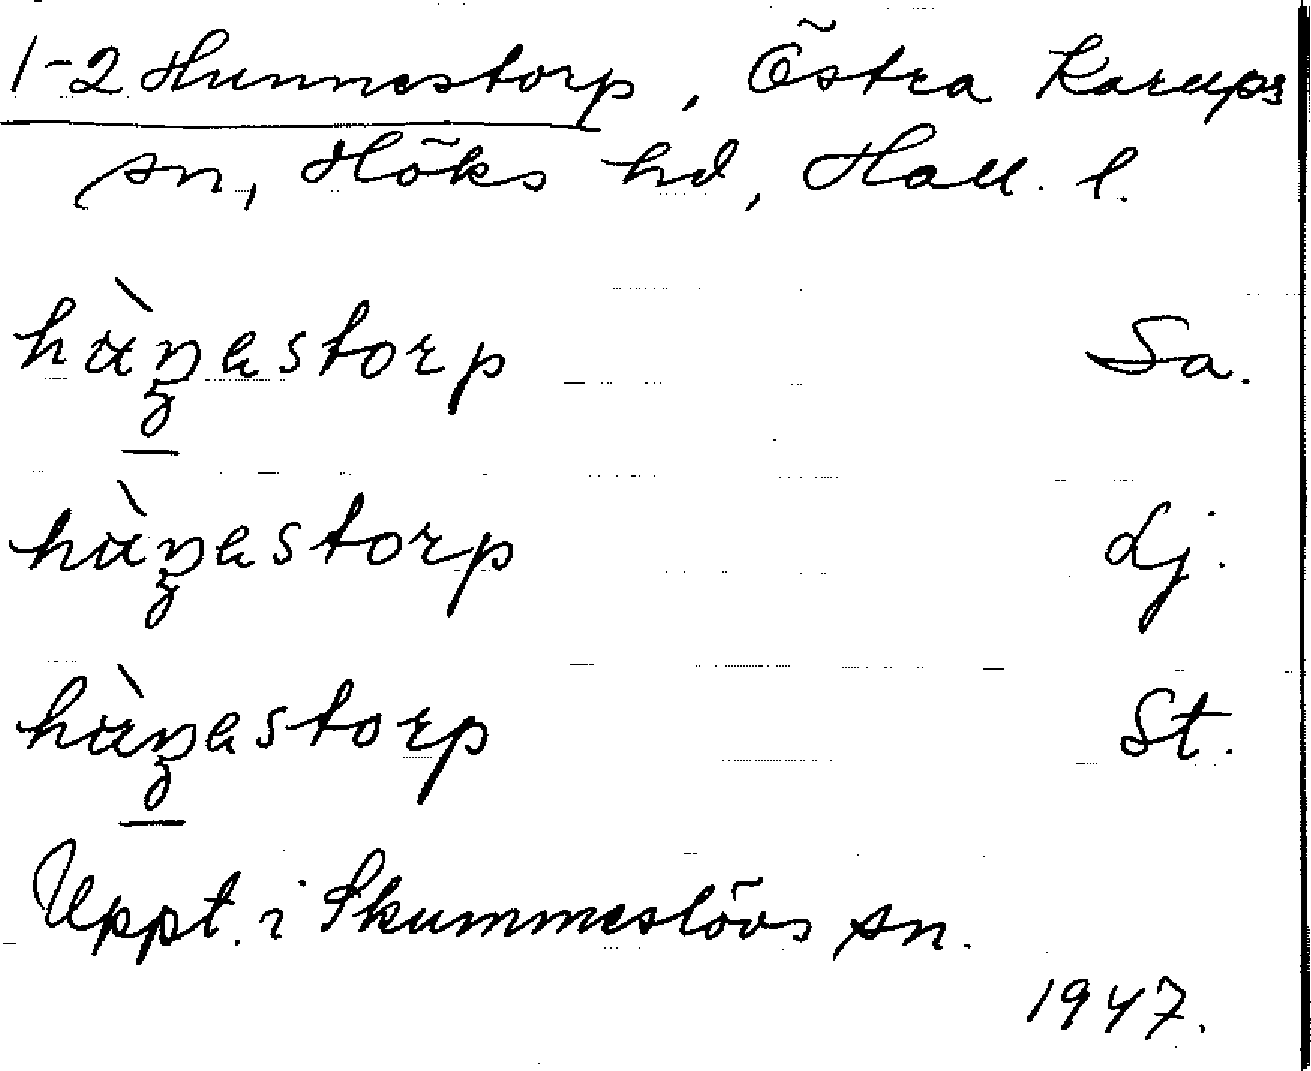 1-2 Hunnestorp, Östra Karups
sn, Höks hd, Hall. l.
hùn̥estorp Sa.
hùn̥estorp Lj.
hùn̥estorp St.
Uppt. i Skummeslövs sn.
1947.